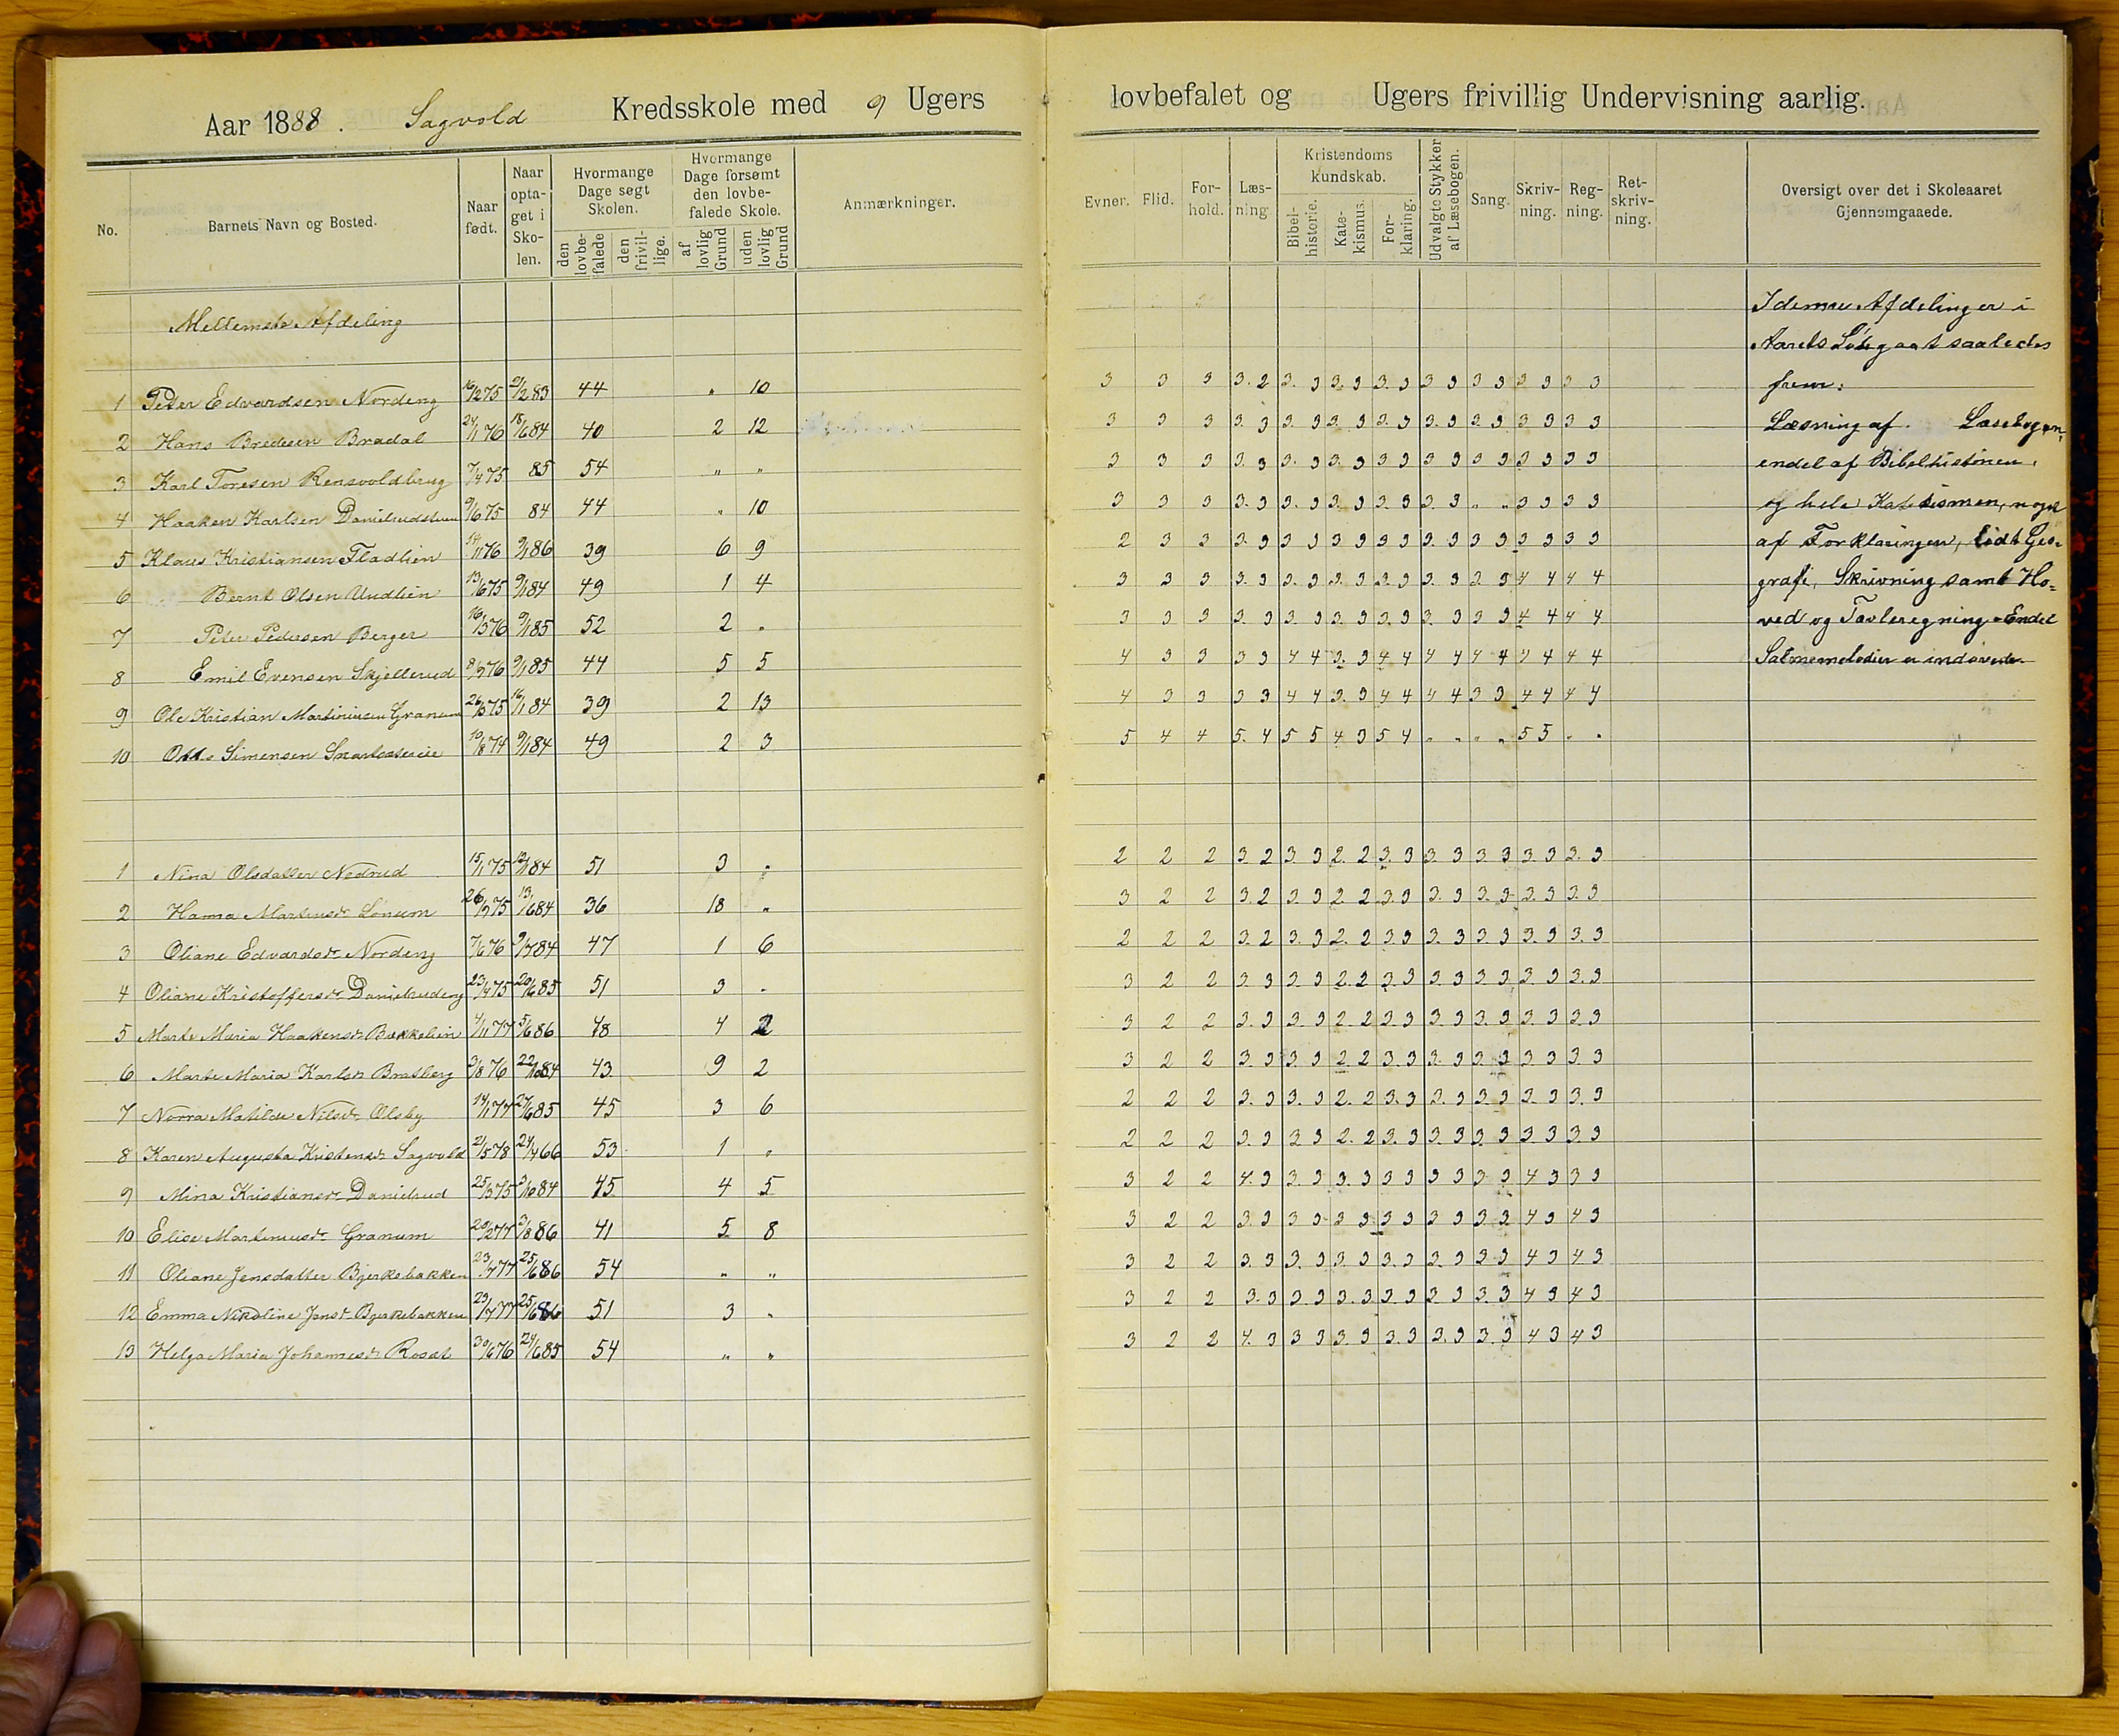 Aar 1888. Sagvold Kredsskole med 9 Ugers lovbefalet og Ugers frivillig Undervisning aarlig.
No.
Barnets Navn og Bosted.
Naar født.
Naar optaget i Skolen.
Hvormange Dage søgt Skolen.
den lovbefalede
den frivillige.
Hvormange Dage forsømt den lovbefalede Skole.
af lovlig Grund
uden lovlig Grund
Anmærkninger.
Evner.
Flid.
Forhold.
Læsning.
Kristendomskundskab.
Bibelhistorie.
Katekismus.
Forklaring.
Udvalgte Stykker af Læsebogen.
Sang.
Skrivning.
Regning.
Retskrivning.
Oversigt over det i Skoleaaret Gjennemgaaede.
Mellemste Afdeling
1 Peter Edvardsen Nordeng 16/2 75 21/2 83 44 " 10 3 3 3 3. 2 3. 3 3. 3 3. 3 3 3 3 3 3 3 3 3
2 Hans Bredesen Bradal 24/1 76 18/6 84 40 2 12 3 3 3 3. 3 3. 3 3. 3 3. 3 3. 3 3. 3 3 3 3 3
3 Karl Toresen Rensvoldbrug 7/4 75 85 54 " " 3 3 3 3. 3 3. 3 3. 3 3 3 3 3 3 3 3 3 3 3
4 Haaken Karlsen 9/6 75 84 44 " 10 3 3 3 3. 3 3. 3 3. 3 3. 3 3. 3 " " 3 3 3 3
5 Klaus Kristiansen Fladlien 14/1 76 9/1 86 39 6 9 2 3 3 3. 3 3 3 3 3 3 3 3. 3 3 3 3 3 3 3
6 Bernt Olsen Undlien 13/6 75 9/1 84 49 1 4 3 3 3 3. 3 3. 3 3. 3 3. 3 3. 3 3 3 4 4 4 4
7 Peter Pedersen Berger 16/3 76 9/1 85 52 2 " 3 3 3 3. 3 3 3 3. 3 3. 3 3. 3 3 3 4 4 4 4
8 Emil Evensen Skjellerud 8/3 76 9/1 85 44 5 5 4 3 3 3 3 4 4 3. 3 4 4 4 4 4 4 4 4 4 4
9 Ole Kristian Martiniusen Granum 26/3 75 16/1 84 39 2 13 4 3 3 3 3 4 4 3. 3 4 4 4 4 3 3 4 4 4 4
10 Otto Simensen 10/8 74 9/1 84 49 2 3 5 4 4 5. 4 5 5 4 3 5 4 " " " " 5 5 " "
1 Nina Olsdatter Nedrud 15/1 75 12/1 84 51 3 " 2 2 2 3. 2 3 3 2. 2 3. 3 3. 3 3 3 3. 3 3. 3
2 Hanna Martinusdr Lønum 26/3 75 13/6 84 36 18 " 3 2 2 3. 2 3 3 2 2 3 3 3. 3 3. 3 3. 3 3. 3
3 Oliane Edvardsdr Nordeng 7/6 76 9/7 84 47 1 6 2 2 2 3. 2 3. 3 2. 2 3 3 3. 3 3. 3 3. 3 3. 3
4 Oliane Kristoffersdr Danielsudeng 23/4 75 20/6 85 51 3 " 3 2 2 3 3 3 3 2. 2 3. 3 3. 3 3 3 3 3 3. 3
5 Marte Maria Haakensdr Bækkelien 4/11 77 5/6 86 48 4 2 3 2 2 3. 3 3. 3 2 2 3 3 3 3 3. 3 3. 3 3 3
6 Marte Maria Karlsdr Bratberg 9/8 76 22/10 84 43 9 2 3 2 2 3. 3 3 3 2 2 3 3 3. 3 3 3 3 3 3 3
7 Norra Matilde Nilsdr Olsby 14/1 77 27/6 85 45 3 6 2 2 2 3. 3 3. 3 2. 2 3. 3 3. 3 3. 3 3. 3 3. 3
8 Karen Augusta Kristensdr Sagvold 21/5 78 24/4 66 53 1 " 2 2 2 3. 3 3 3 2. 2 3. 3 3. 3 3 3 3 3 3. 3
9 Mina Kristiansdr Danielsud 25/3 75 2/10 84 45 4 5 3 2 2 4. 3 3 3 3. 3 3 3 3 3 3 3 4 3 3 3
10 Elise Martinusdr Granum 20/2 77 3/8 86 41 5 8 3 2 2 3. 3 3 3 3 3 3 3 3 3 3. 3 4 3 4 3
11 Oliane Jensdatter Bjerkebakken 23/7 77 25/6 86 54 " " 3 2 2 3. 3 3. 3 3. 3 3. 3 3. 3 3 3 4 3 4 3
12 Emma Nikoline Jensdr Bjerkebakken 23/7 77 25/6 86 51 3 " 3 2 2 3. 3 3 3 3. 3 3 3 3 3 3. 3 4 3 4 3
13 Helga Maria Johannesdr Rosal 30/6 76 24/6 85 54 " " 3 2 2 4. 3 3 3 3. 3 3. 3 3. 3 3. 3 4 3 4 3
I denne Afdeling er i
Aarets Løb gaat saaledes
frem:
Læsning af Læsebogen,
endel af Bibelhistorien,
og hele Katekismen, noget
af Forklaringen, lidt Geo-
grafi, Skrivning samt Ho-
ved og Tavleregning. Endel
Salmemelodier er indøvede